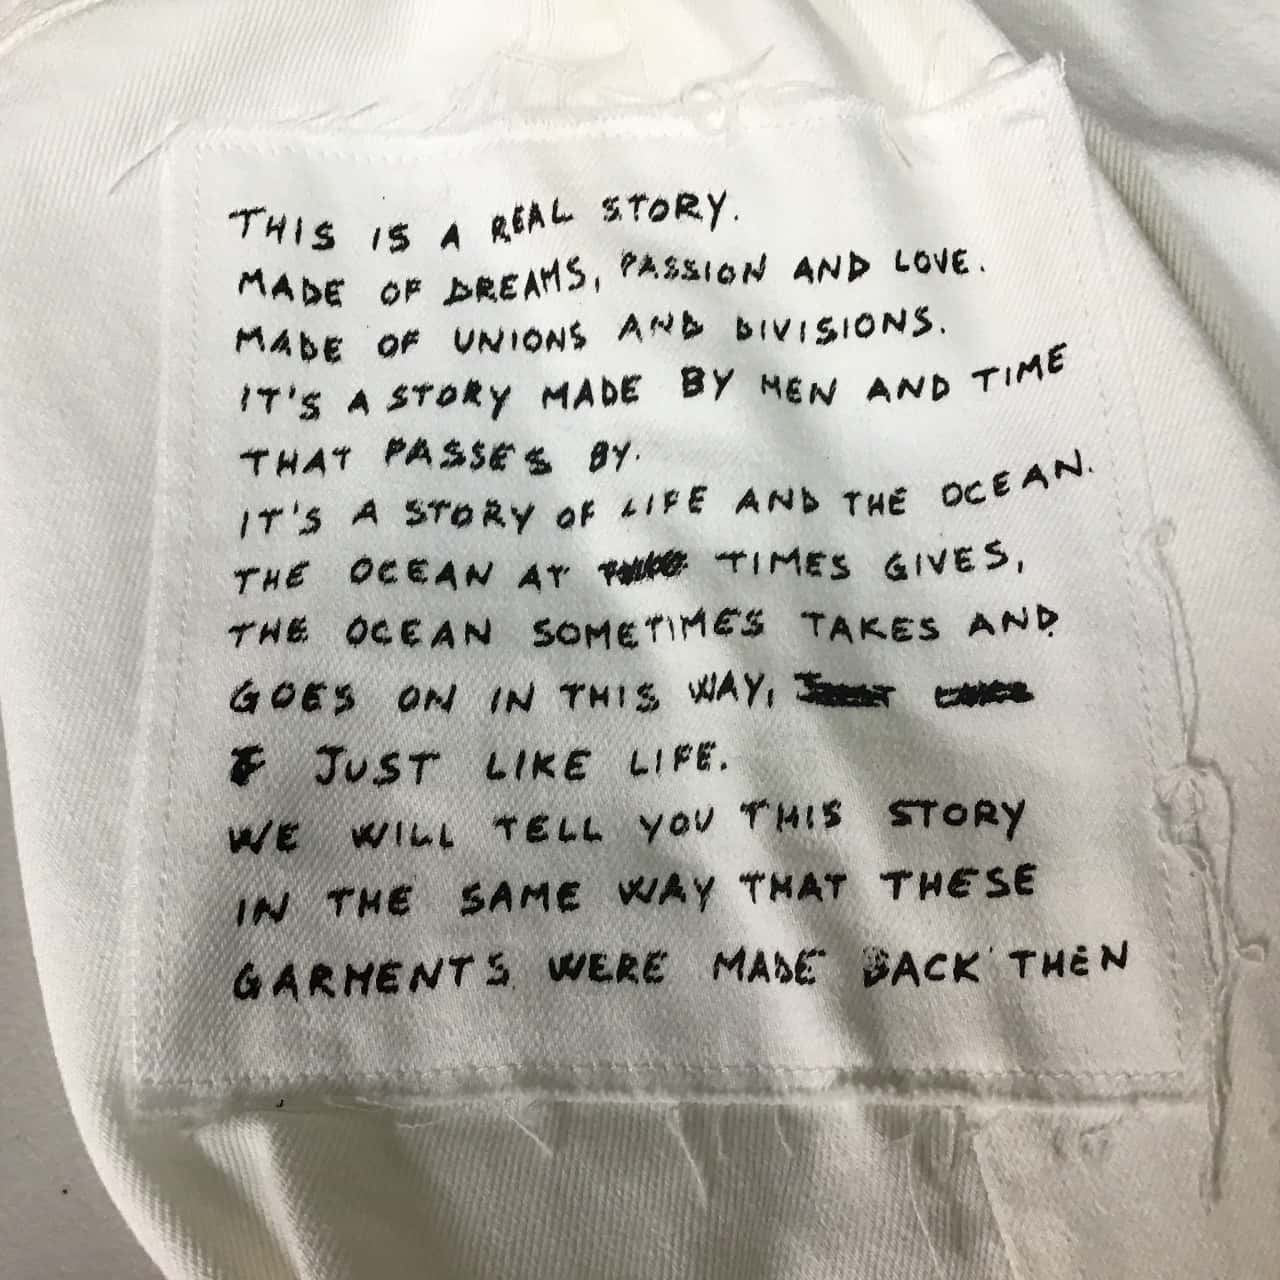 THIS IS A REAL STORY.
MADE OF DREAMS, PASSION AND LOVE.
MADE OF UNIONS AND DIVISIONS.
IT'S A STORY MADE BY MEN AND TIME
THAT PASSES BY.
IT'S A STORY OF LIFE AND THE OCEAN.
THE OCEAN AT TIMES GIVES,
THE OCEAN SOMETIMES TAKES AND
GOES ON IN THIS WAY,
JUST LIKE LIFE.
WE WILL TELL YOU THIS STORY
IN THE SAME WAY THAT THESE
GARMENTS WERE MADE BACK THEN